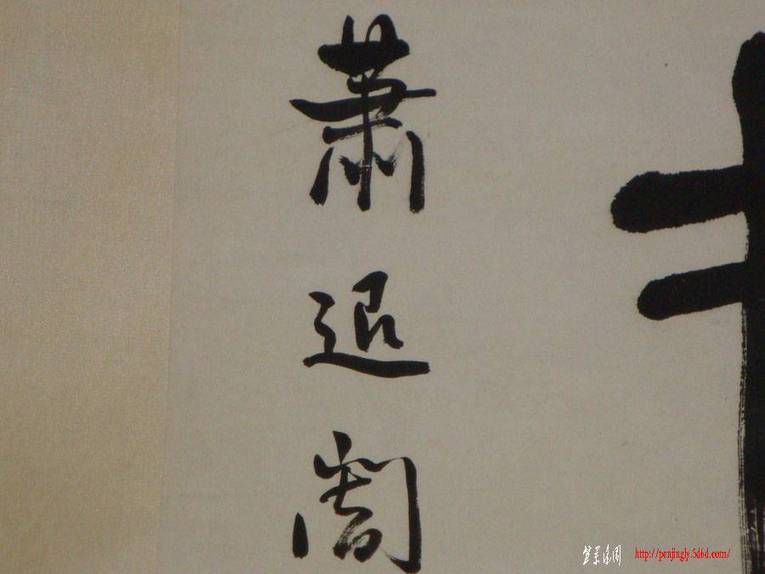 蕭退闇
盆景乐园 http://penjingly.5d6d.com/